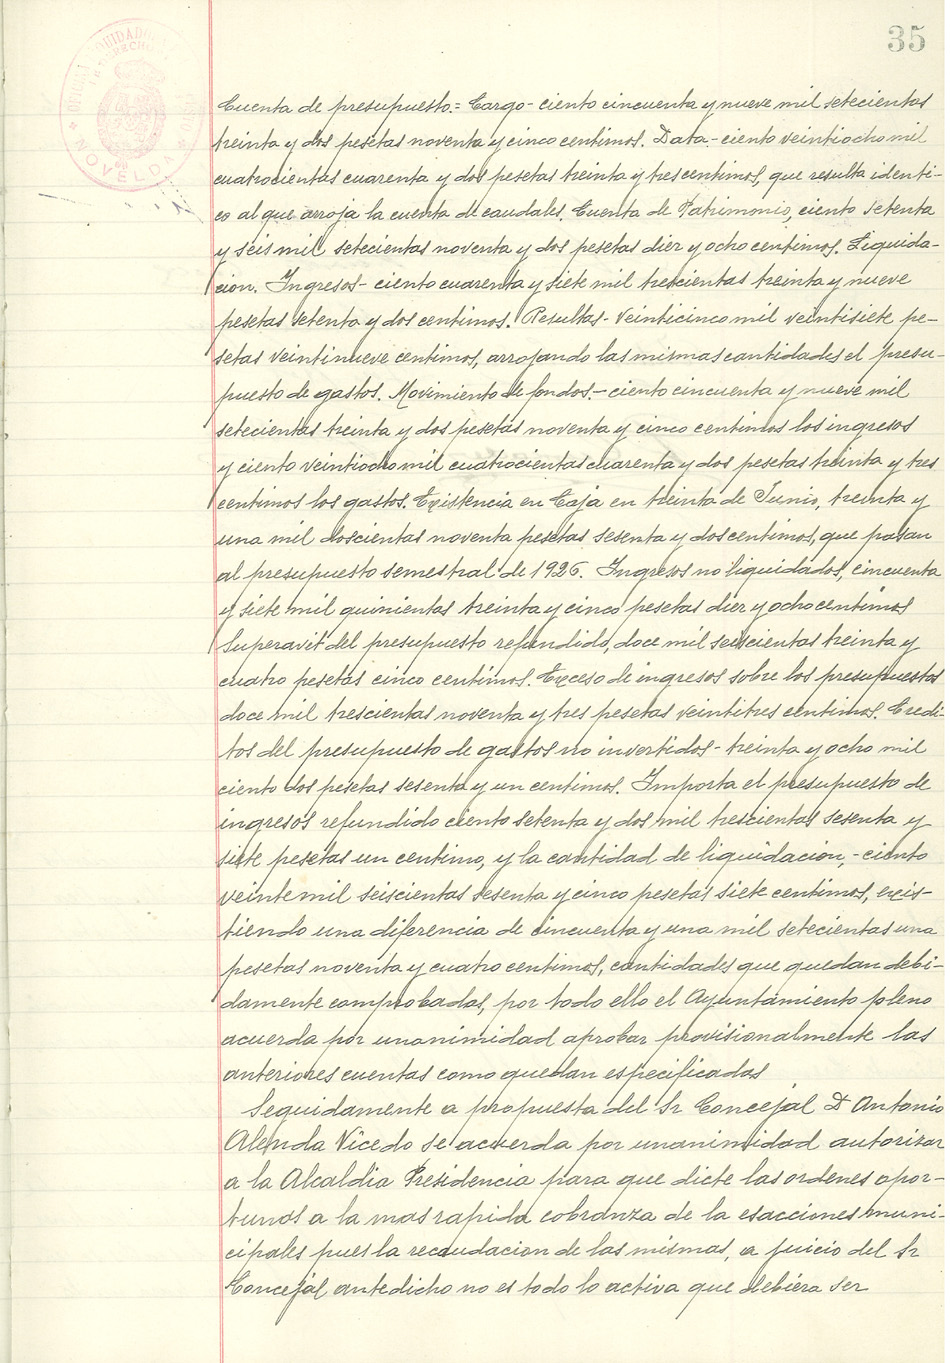 35
NOVELDA
Cuenta de presupuesto.= Cargo- ciento cincuenta y nueve mil setecientas
treinta y dos pesetas noventa y cinco centimos. Data.- ciento veintiocho mil
cuatrocientas cuarenta y dos pesetas treinta y tres centimos, que resulta identi-
co al que arroja la cuenta de caudales. Cuenta de Patrimonio, ciento setenta
y seis mil setecientas noventa y dos pesetas diez y ocho centimos. Liquida-
cion. Ingresos- ciento cuarenta y siete mil trescientas treinta y nueve
pesetas setenta y dos centimos. Resultas- Veinticinco mil veintisiete pe-
setas veintinueve centimos, arrojando las mismas cantidades el presu-
puesto de gastos. Movimiento de fondos.- ciento cincuenta y nueve mil
setecientas treinta y dos pesetas noventa y cinco centimos los ingresos
y ciento veintiocho mil cuatrocientas cuarenta y dos pesetas treinta y tres
centimos los gastos. Existencia en Caja en treinta de Junio, treinta y
una mil doscientas noventa pesetas sesenta y dos centimos, que pasan
al presupuesto semestral de 1926. Ingresos no liquidados, cincuenta
y siete mil quinientas treinta y cinco pesetas diez y ocho centimos
Superavit del presupuesto refundido, doce mil seiscientas treinta y
cuatro pesetas cinco centimos. Exceso de ingresos sobre los presupuestos
doce mil trescientas noventa y tres pesetas veintitres centimos. Credi-
tos del presupuesto de gastos no invertidos- treinta y ocho mil
ciento dos pesetas sesenta y un centimos. Importa el presupuesto de
ingresos refundido ciento setenta y dos mil trescientas sesenta y
siete pesetas un centimo, y la cantidad de liquidacion,- ciento
veinte mil seiscientas sesenta y cinco pesetas siete centimos, exis-
tiendo una diferencia de cincuenta y una mil setecientas una
pesetas noventa y cuatro centimos, cantidades que quedan debi-
damente comprobadas, por todo ello el Ayuntamiento pleno
acuerda por unanimidad aprobar provisionalmente las
anteriores cuentas como quedan especificadas
Seguidamente a propuesta del Sr Concejal D Antonio
Alenda Vicedo se acuerda por unanimidad autorizar
a la Alcaldia Presidencia para que dicte las ordenes opor-
tunas a la mas rapida cobranza de la esacciones muni-
cipales pues la recaudacion de las mismas, a juicio del Sr
Concejal antedicho no es todo lo activa que debiera ser